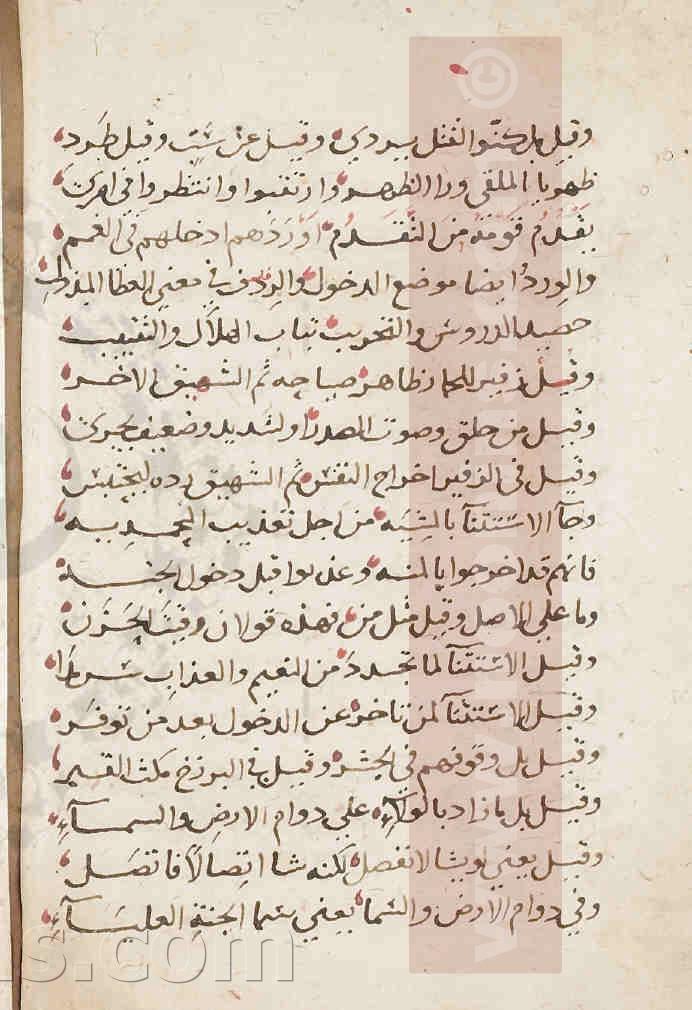 وقيل بل كنوا القتل يردي وقيل عن شتت وقيل طرد
ظهريا الملقى ورا الظهر وارتقبوا وانتظروا في امري
يقدم قومه من التقدم اوردهم ادخلهم في الغم
والورد ايضا موضع الدخول والرفد في معنى العطا المبذول
حصيد الدروس والتخريب تباب الهلاك والتتبيب
وقيل زفير للحمار ظاهر صياحه ثم الشهيق الاخر
وقيل من حلق وصوت الصدر او لشديد وضعيف يجري
وقيل في الزفير اخراج النفس ثم الشهيق رده ليحتبس
وجآ الاستثنآ بالمشيه من اجل تعذيب
فانهم قد اخرجوا بالمنه وعذبوا قبل دخول الجنه
وما على الاصل وقيل مثل من فهذه قولان وقيت الحزن
وقيل الاستثنآ لما تجددا من النعيم والعذاب سرمدا
وقيل الاستثنآ لمن تاخر عن الدخول بعد من توفر
وقيل بل وقوفهم في الحشر وقيل في البرزخ مكث القبر
وقيل بل ما زاد بالولآء على دوام الارض والسمآء
وقيل يعني لو يشا لانفصل لكنه شا اتصالا فاتصل
وفي دوام الارض والسما يعني سما الجنة العليآء
www.
©
s.com